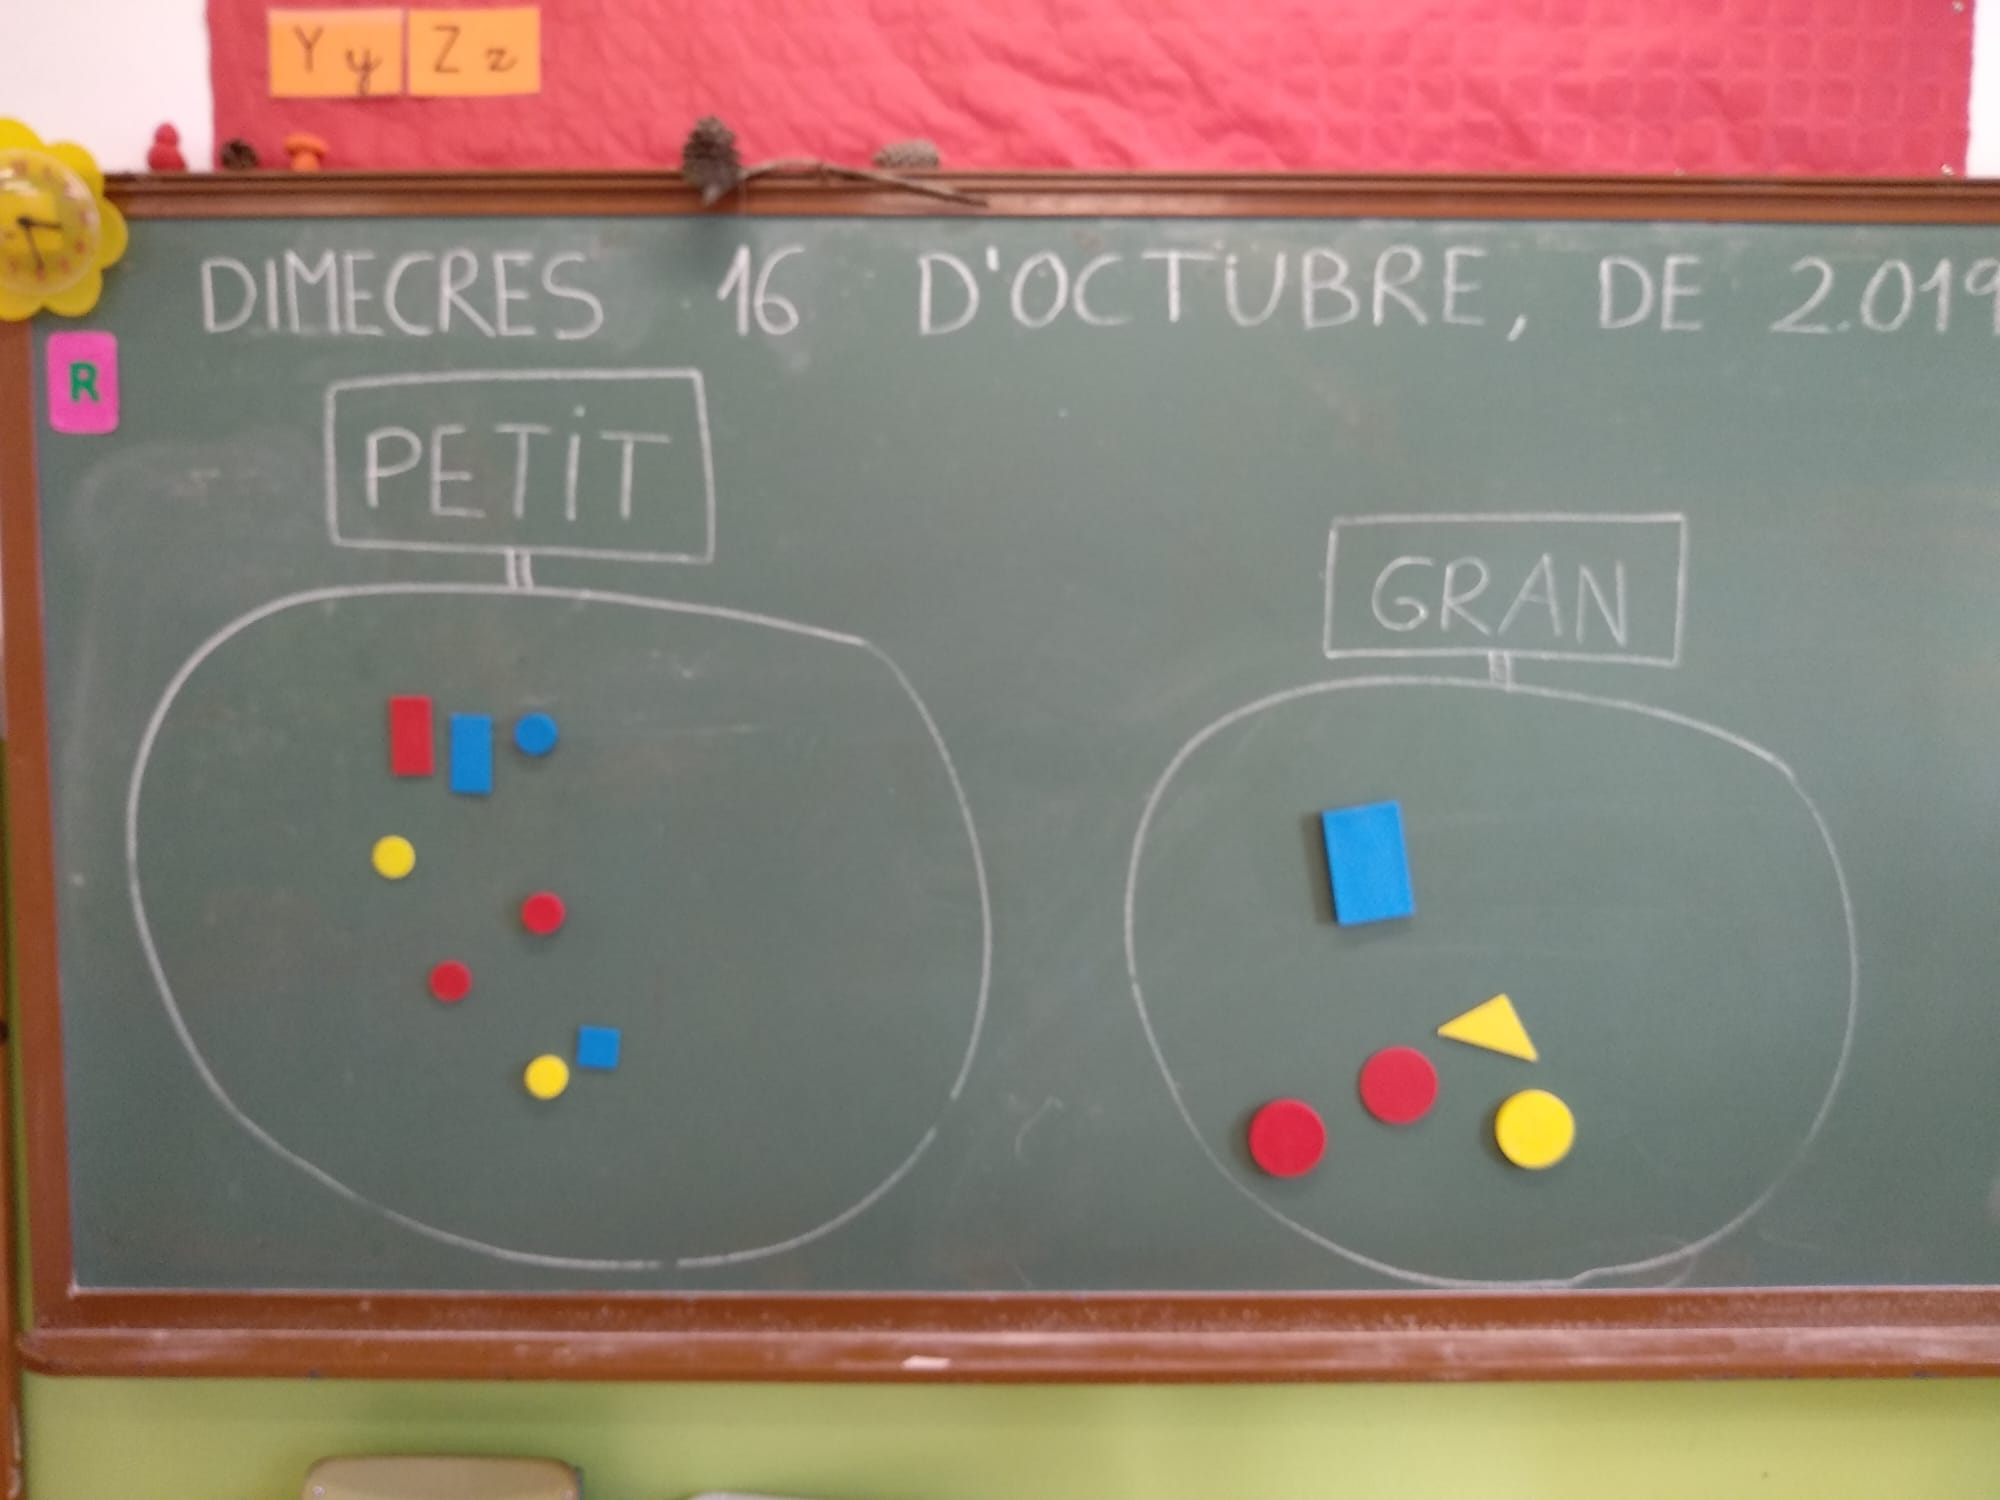 Y y Z z
DIMECRES 16 D'OCTUBRE, DE 2.019
R
PETiT
GRAN